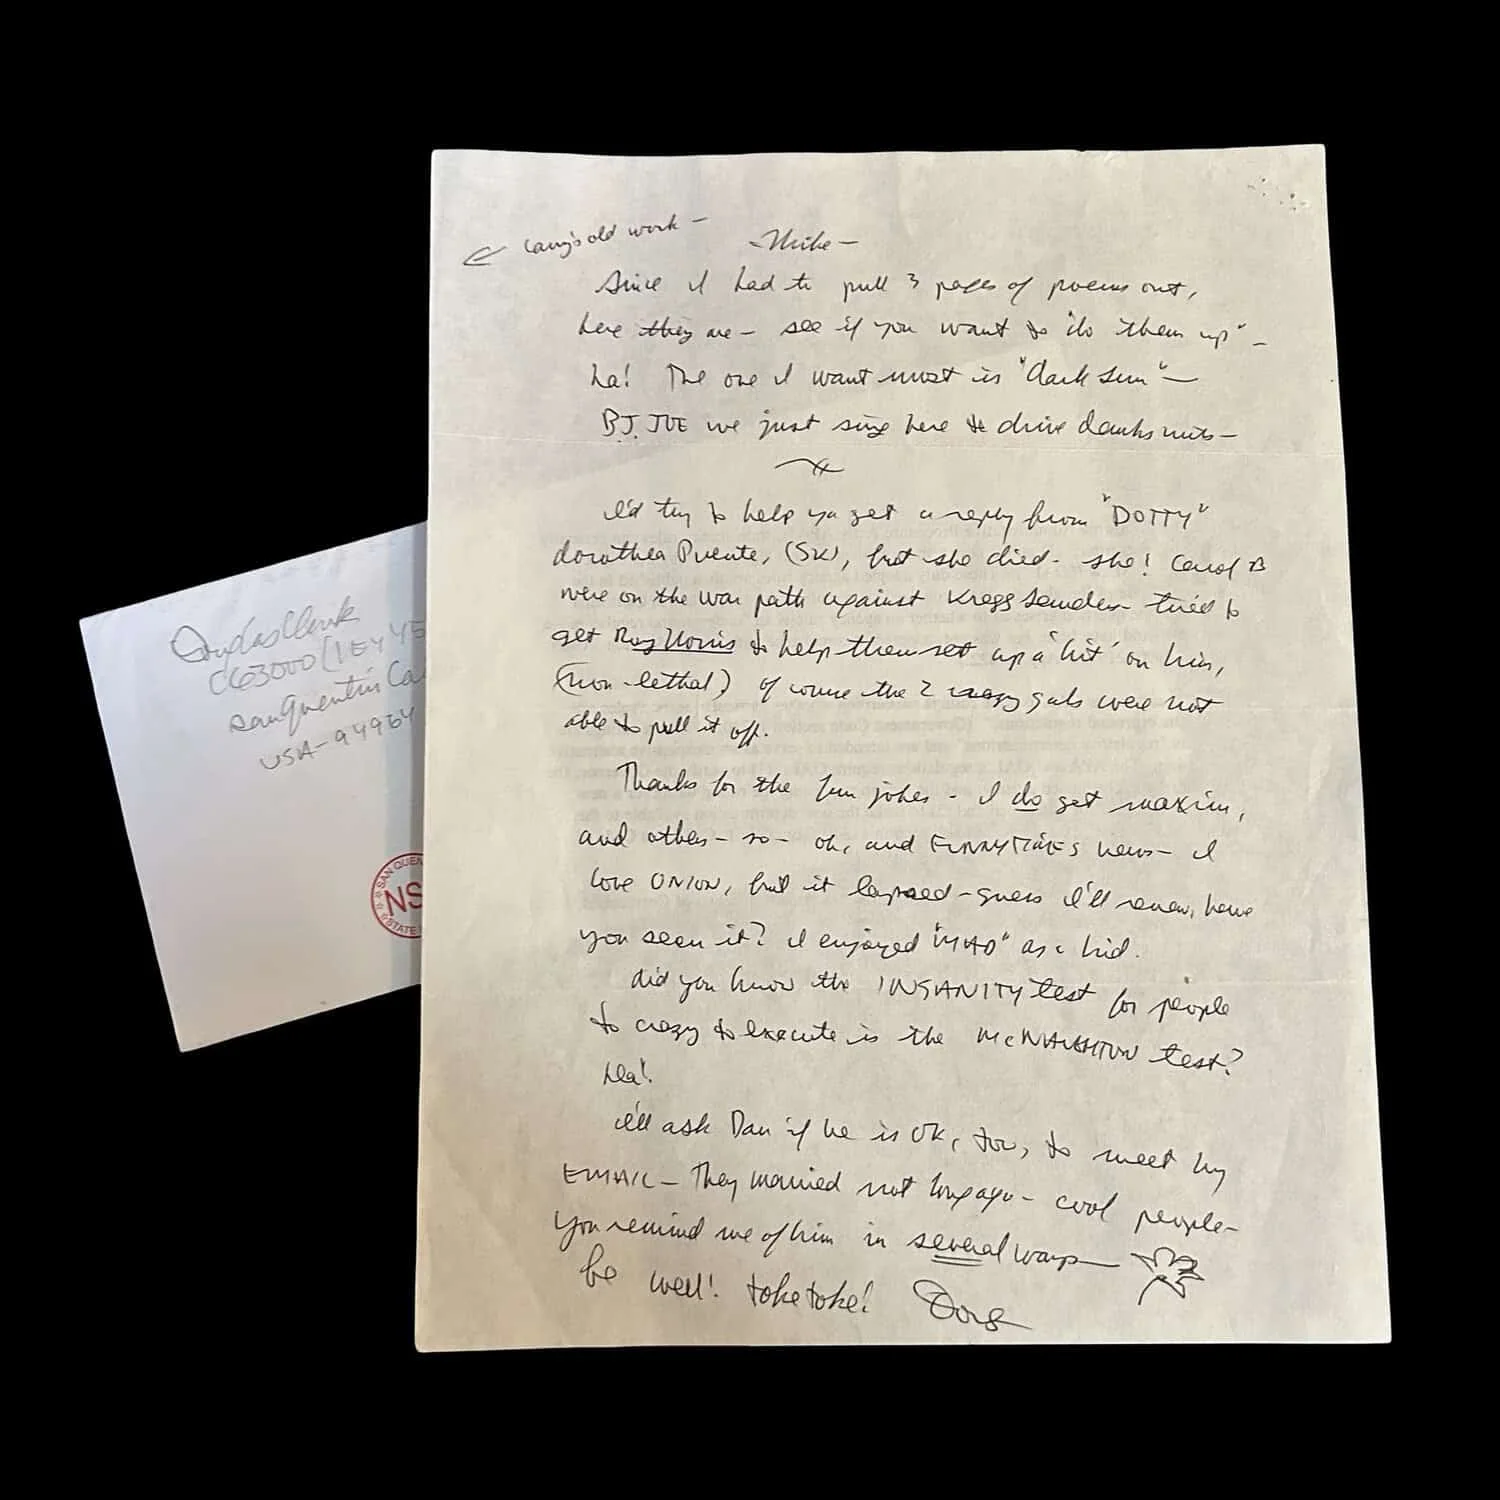 ← Larry's old work –
– Mike –
Since I had to pull 3 pages of poems out,
here they are – see if you want to "do them up" –
ha! The one I want most is "dark sun" –
B.J. JOE we just sing here to drive danks nuts –
I'd try to help ya get a reply from "DOTTY"
dorothea Puente, (SK), but she died – she! Carol B
were on the war path against Kregg Saunders – tried to
get Roy Norris to help them set up a 'hit' on him,
(non-lethal) of course the 2 crazy gals were not
able to pull it off.
Thanks for the fun jokes – I do get maxim,
and others – so – oh, and FUNNYTIMES news – I
love ONION, but it lapsed – guess I'll renew, have
you seen it? I enjoyed "MAD" as a kid.
did you know the INSANITY test for people
to crazy to execute is the McNAUGHTON test?
Ha!
I'll ask Dan if he is OK, too, to meet by
EMAIL – They married not long ago – cool people –
you remind me of him in several ways –
be well! toke toke! Doug
Douglas Clark
C63000 (1EY45
San Quentin Ca
USA – 94964
SAN QUEN
NS
STATE